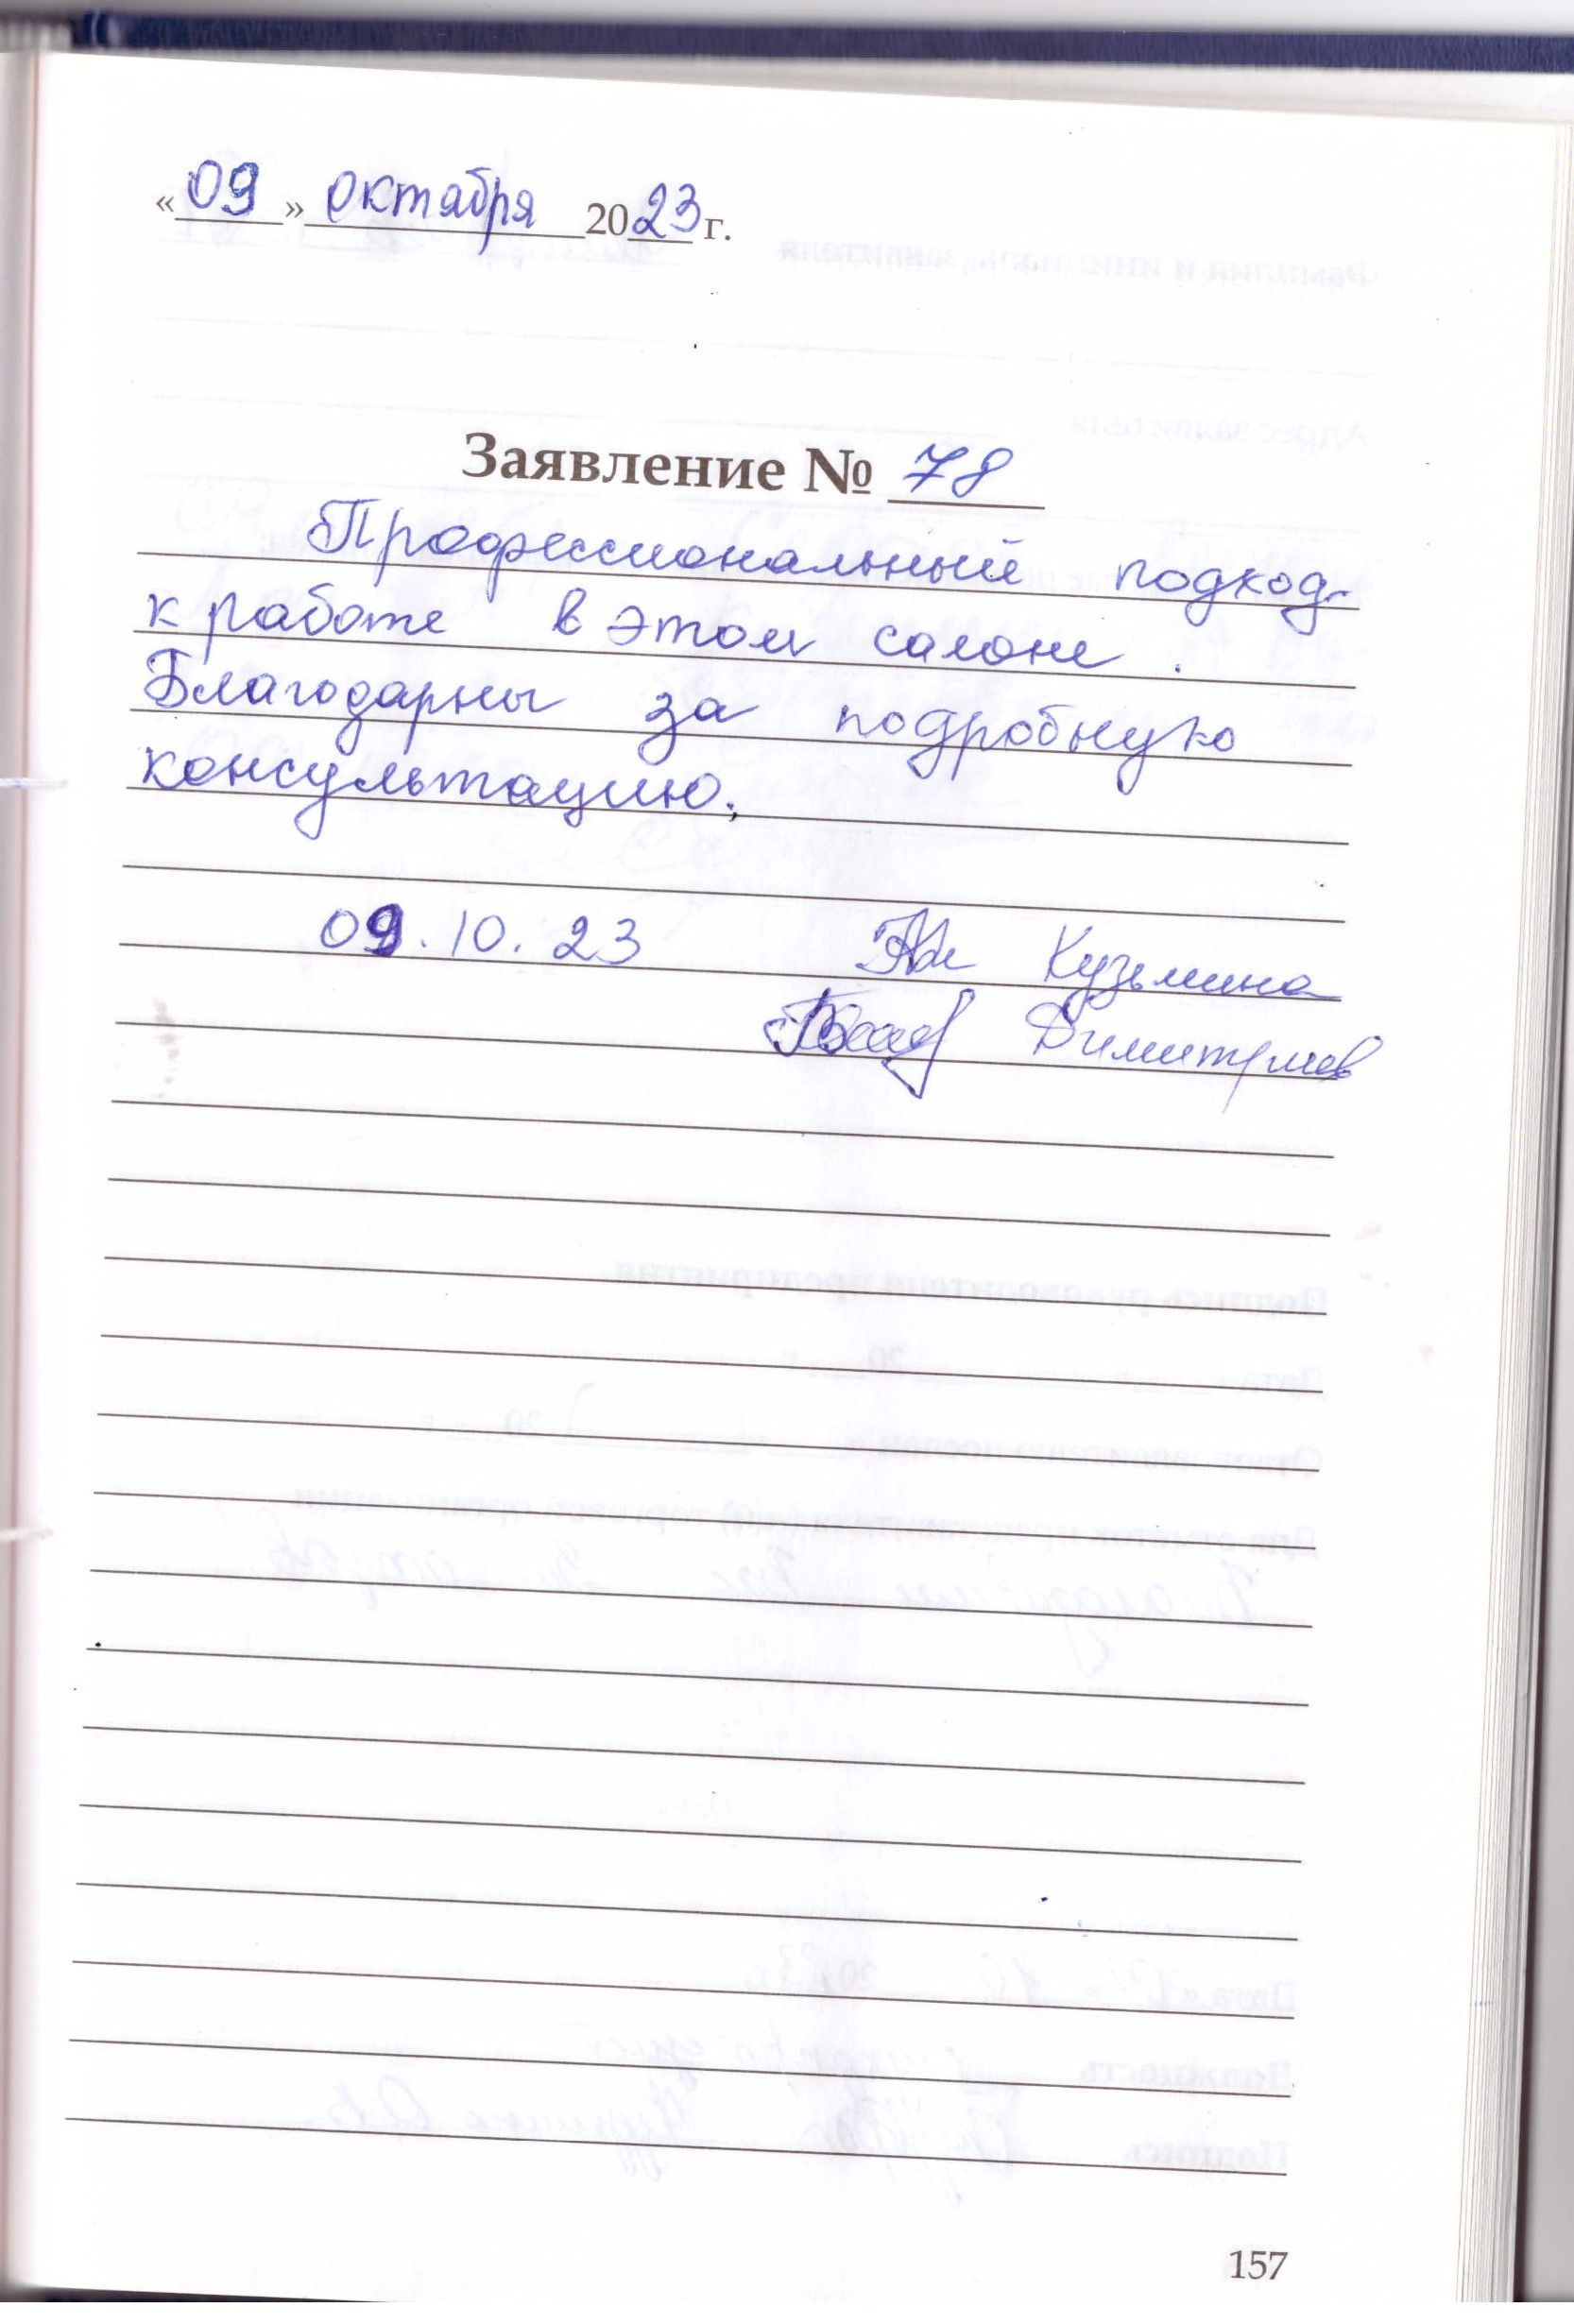 «09» октября 2023 г.
Заявление № 78
Профессиональный подход
к работе в этом салоне.
Благодарны за подробную
консультацию.
09.10.23 Кузьмина
Димитриев
157